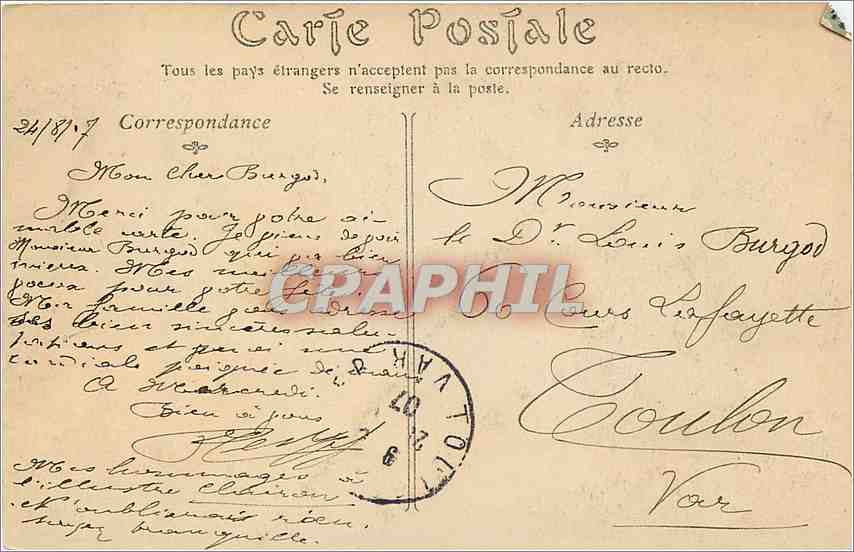 Carte Postale
Tous les pays étrangers n'acceptent pas la correspondance au recto.
Se renseigner à la poste.
24/8/.7 Correspondance
Mon cher Burgod,
Merci pour votre ai-
mable carte. Je viens de voir
Monsieur Burgod qui va bien
mieux. Mes meilleurs
voeux pour votre fête.
Ma famille vous adresse
ses bien sincères salu-
tations et moi une
cordiale poignée de main
A Mercredi.
Bien à vous
Mes hommages à
l'illustre Clairon
et n'oublierais rien,
soyez tranquille.
Adresse
Monsieur
le Dr. Louis Burgod
Cours Lafayette
Toulon
Var
CPAPHIL
TOUL
VAR
07